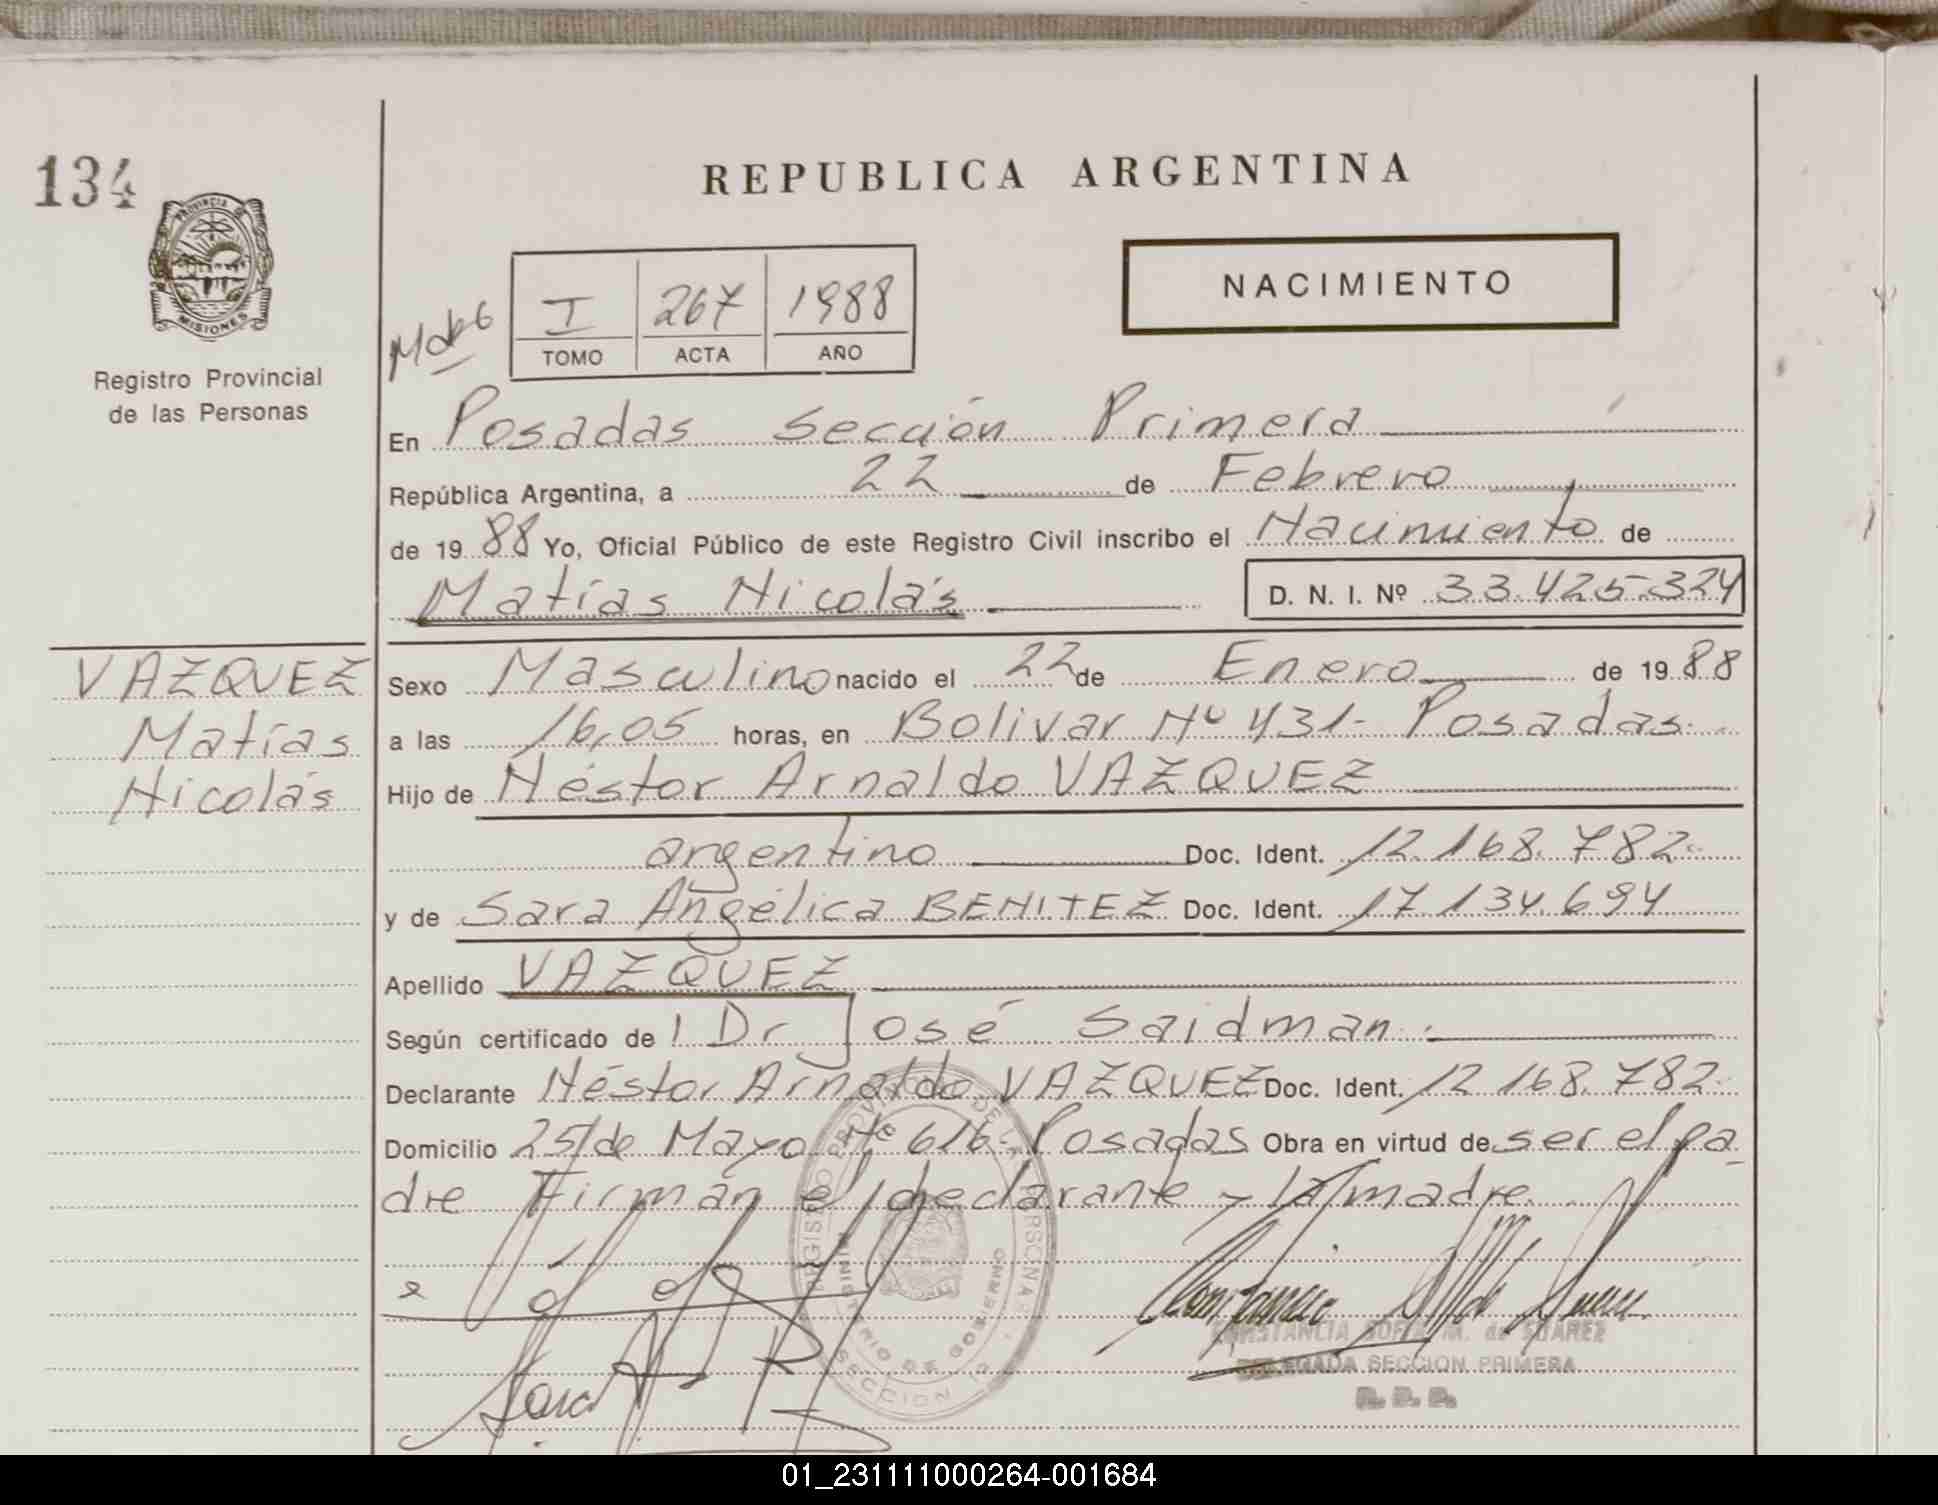 134
REPUBLICA ARGENTINA
PROVINCIA DE
MISIONES
NACIMIENTO
I 267 1988
TOMO ACTA AÑO
Registro Provincial
de las Personas
En Posadas Sección Primera
República Argentina, a 22 de Febrero
de 1988 Yo, Oficial Público de este Registro Civil inscribo el Nacimiento de
Matías Nicolás D. N. I. Nº 33.425.324
VAZQUEZ
Matías
Nicolás
Sexo Masculino nacido el 22 de Enero de 1988
a las 16,05 horas, en Bolivar Nº 431- Posadas.
Hijo de Néstor Arnaldo VAZQUEZ
argentino Doc. Ident. 12.168.782.
y de Sara Angélica BENITEZ Doc. Ident. 17.134.694
Apellido VAZQUEZ
Según certificado de l Dr José Saidman.
Declarante Néstor Arnaldo VAZQUEZ Doc. Ident. 12 168.782.
Domicilio 25 de Mayo Nº 616- Posadas Obra en virtud de ser el pa
dre Firman el declarante y la madre.
REGISTRO PROVINCIAL DE LAS PERSONAS
MINISTERIO DE GOBIERNO
SECCION
CONSTANCIA SOFIA M. de SUAREZ
DELEGADA SECCION PRIMERA
01_231111000264-001684